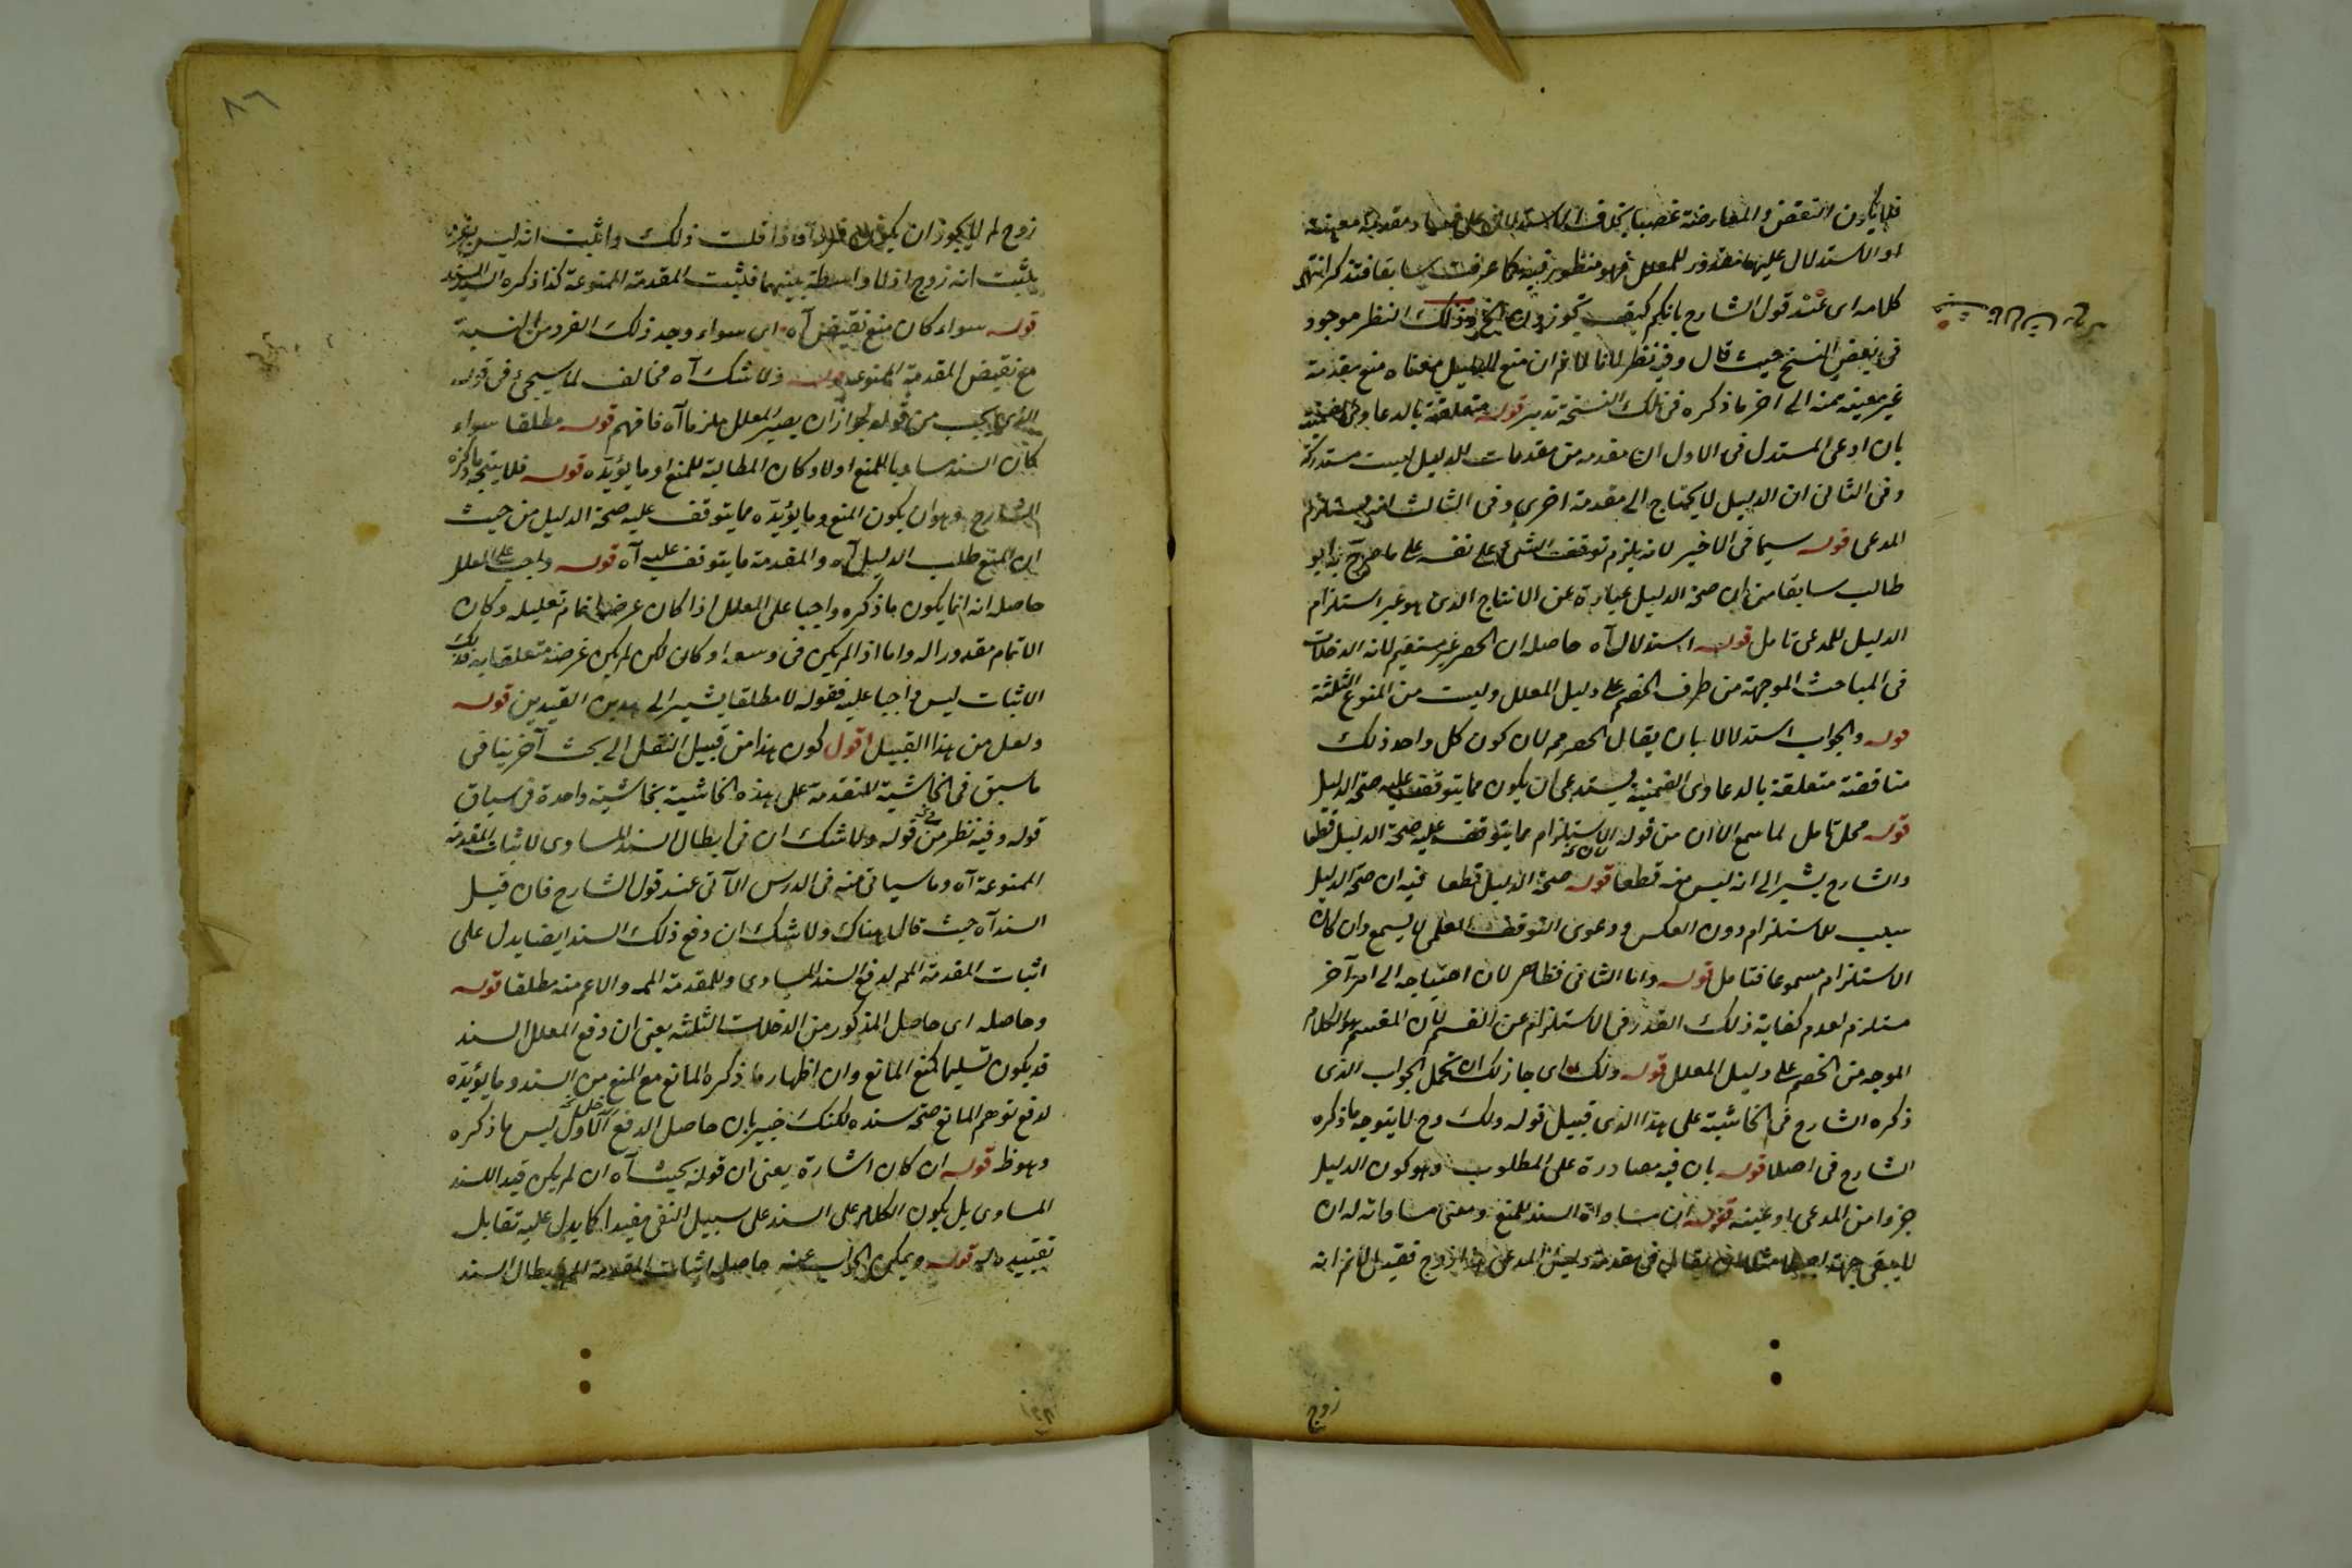 فلا يكون النقض والمعارضة غصبا بخلاف الاستدلال على فساد مقدمة معينة
او الاستدلال عليها مقدور للمعلل فهو منظور فيه كما عرفت سابقا فتذكر انتهى
كلامه اى عند قول الشارح بانكم كيف تجوزون وذلك النظر موجود
فى بعض النسخ حيث قال وفيه نظر لانا لا نم ان منع الدليل معناه منع مقدمة
غير معينة منه الى آخر ما ذكره فى تلك النسخة تدبر قوله متعلقة بالدعاوى الضمنية
بان ادعى المستدل فى الاول ان مقدمة من مقدمات الدليل ليست مستدركة
وفى الثانى ان الدليل لا يحتاج الى مقدمة اخرى وفى الثالث انه يستلزم
المدعى قوله سيما فى الاخير لانه يلزم توقف الشئ على نفسه على ما صرح به ابو
طالب سابقا من ان صحة الدليل عبارة عن الانتاج الذى هو عين استلزام
الدليل للمدعى تامل قوله استدلالا آه حاصله ان الحصر غير مستقيم لانه الدخلات
فى المباحث الموجهة من طرف الخصم على دليل المعلل وليست من المنوع الثلثة
قوله والجواب استدلالا بان يقال الحصر مم لان كون كل واحد ذلك
مناقضة متعلقة بالدعاوى الضمنية يستدعى ان يكون مما يتوقف عليه صحة الدليل
قوله محل تامل لما سمع الآن من قوله الاستلزام مما يتوقف عليه صحة الدليل قطعا
والشارح يشير الى انه ليس منه قطعا قوله صحة الدليل قطعا فيه ان صحة الدليل
سبب للاستلزام دون العكس ودعوى التوقف العلمى لا يسمع وان كان
الاستلزام مسموعا فتامل قوله واما الثانى فظاهر لان احتياجه الى امر آخر
مستلزم لعدم كفاية ذلك القدر فى الاستلزام عن القسم لان المقسم هو الكلام
الموجه من الخصم على دليل المعلل قوله وذلك اى جاز لك ان تحمل الجواب الذى
ذكره الشارح فى الحاشية على هذا الذى قبيل قوله ولك وح لا يتوجه ما ذكره
الشارح فى اصلا قوله بان فيه مصادرة على المطلوب وهو كون الدليل
جزوا من المدعى او عينه قوله ان مساواة السند للمنع ومعنى مساواته له ان
لا يبقى جهة مثلا يقال فى مقدمة المدعى هذا زوج فقيل لا نم انه
زوج
٨٦
زوج لم لا يجوز ان يكون فردا فاذا قلت ذلك واثبت انه ليس بفرد
يثبت انه زوج اذ لا واسطة بينهما فثبت المقدمة الممنوعة كذا ذكره السيد السند
قوله سواء كان منع نقيض آه اى سواء وجد ذلك الفرد من النسبة
مع نقيض المقدمة الممنوعة قوله ولا شك آه مخالف لما سيجئ فى قوله
من قوله لجواز ان يصير المعلل ملزما آه فافهم قوله مطلقا سواء
كان السند مساويا للمنع او لا وكان المطالبة للمنع او ما يؤيده قوله فلا يتجه ما ذكره
الشارح وهو ان يكون المنع وما يؤيده مما يتوقف عليه صحة الدليل من حيث
ان المنع طلب الدليل آه والمقدمة ما يتوقف عليه آه قوله واجب على المعلل
حاصله انه انما يكون ما ذكره واجبا على المعلل اذا كان غرضه اتمام تعليله وكان
الاتمام مقدورا له واما اذا لم يكن فى وسعه او كان لكن لم يكن غرضه متعلقا به فذلك
الاثبات ليس واجبا عليه فقوله لا مطلقا يشير الى هدين القيدين قوله
ولعل من هذا القبيل اقول كون هذا من قبيل النقل الى بحث آخر ينافى
ما سبق فى الحاشية المتقدمة على هذه الحاشية بحاشية واحدة فى سياق
قوله وفيه نظر من قوله ولا شك ان فى ابطال السند المساوى لاثبات المقدمة
الممنوعة آه وما سياتى منه فى الدرس الآتى عند قول الشارح فان قيل
السند آه حيث قال هناك ولا شك ان دفع ذلك السند ايضا يدل على
اثبات المقدمة المم لدفع السند المساوى وللمقدمة المم والاعم منه مطلقا قوله
وحاصله اى حاصل المذكور من الدخلات الثلثة يعنى ان دفع المعلل السند
قد يكون تسليما لمنع المانع وان اظهار ما ذكره المانع مع المنع من السند وما يؤيده
لدفع توهم المانع صحة سنده لكنك خبير بان حاصل الدفع الاول ليس ما ذكره
وهو ظ قوله ان كان اشارة يعنى ان قوله بحيث آه ان لم يكن قيدا للسند
المساوى بل يكون الكلام على السند على سبيل النفى مفيدا كما يدل عليه تقابل
تقييده له قوله ويمكن الجواب عنه حاصله اثبات المقدمة المم بابطال السند